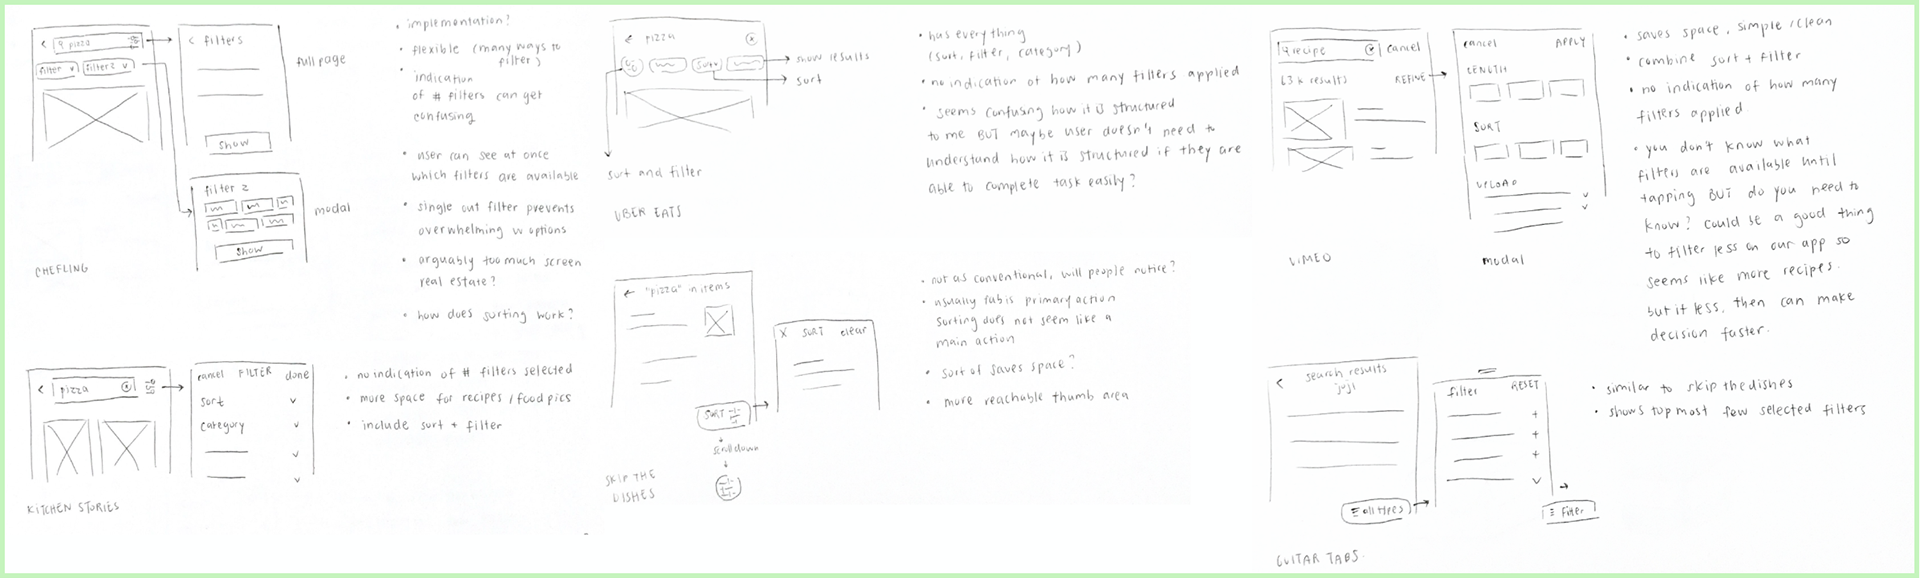 < pizza
filter v filter 2 v
< filters
show
full page
filter 2
show
modal
CHEFLING
• implementation?
• flexible (many ways to
filter)
• indication
of # filters can get
confusing
• user can see at once
which filters are available
• single out filter prevents
overwhelming w options
• arguably too much screen
real estate?
• how does sorting work?
< pizza
cancel FILTER done
sort
category
KITCHEN STORIES
• no indication of # filters selected
• more space for recipes / food pics
• include sort + filter
← pizza
sort v
show results
sort
sort and filter
UBER EATS
• has everything
(sort, filter, category)
• no indication of how many filters applied
• seems confusing how it is structured
to me BUT maybe user doesn't need to
understand how it is structured if they are
able to complete task easily?
← "pizza" in items
SORT
scroll down
X SORT clear
SKIP THE
DISHES
• not as conventional, will people notice?
• usually fab is primary action
sorting does not seem like a
main action
• sort of saves space?
• more reachable thumb area
recipe cancel
63k results REFINE
cancel APPLY
LENGTH
SORT
UPLOAD
VIMEO
modal
• saves space, simple / clean
• combine sort + filter
• no indication of how many
filters applied
• you don't know what
filters are available until
tapping BUT do you need to
know? could be a good thing
to filter less on our app so
seems like more recipes.
but if less, then can make
decision faster.
< search results
juji
all types
filter RESET
Filter
GUITAR TABS.
• similar to skip the dishes
• shows top most few selected filters